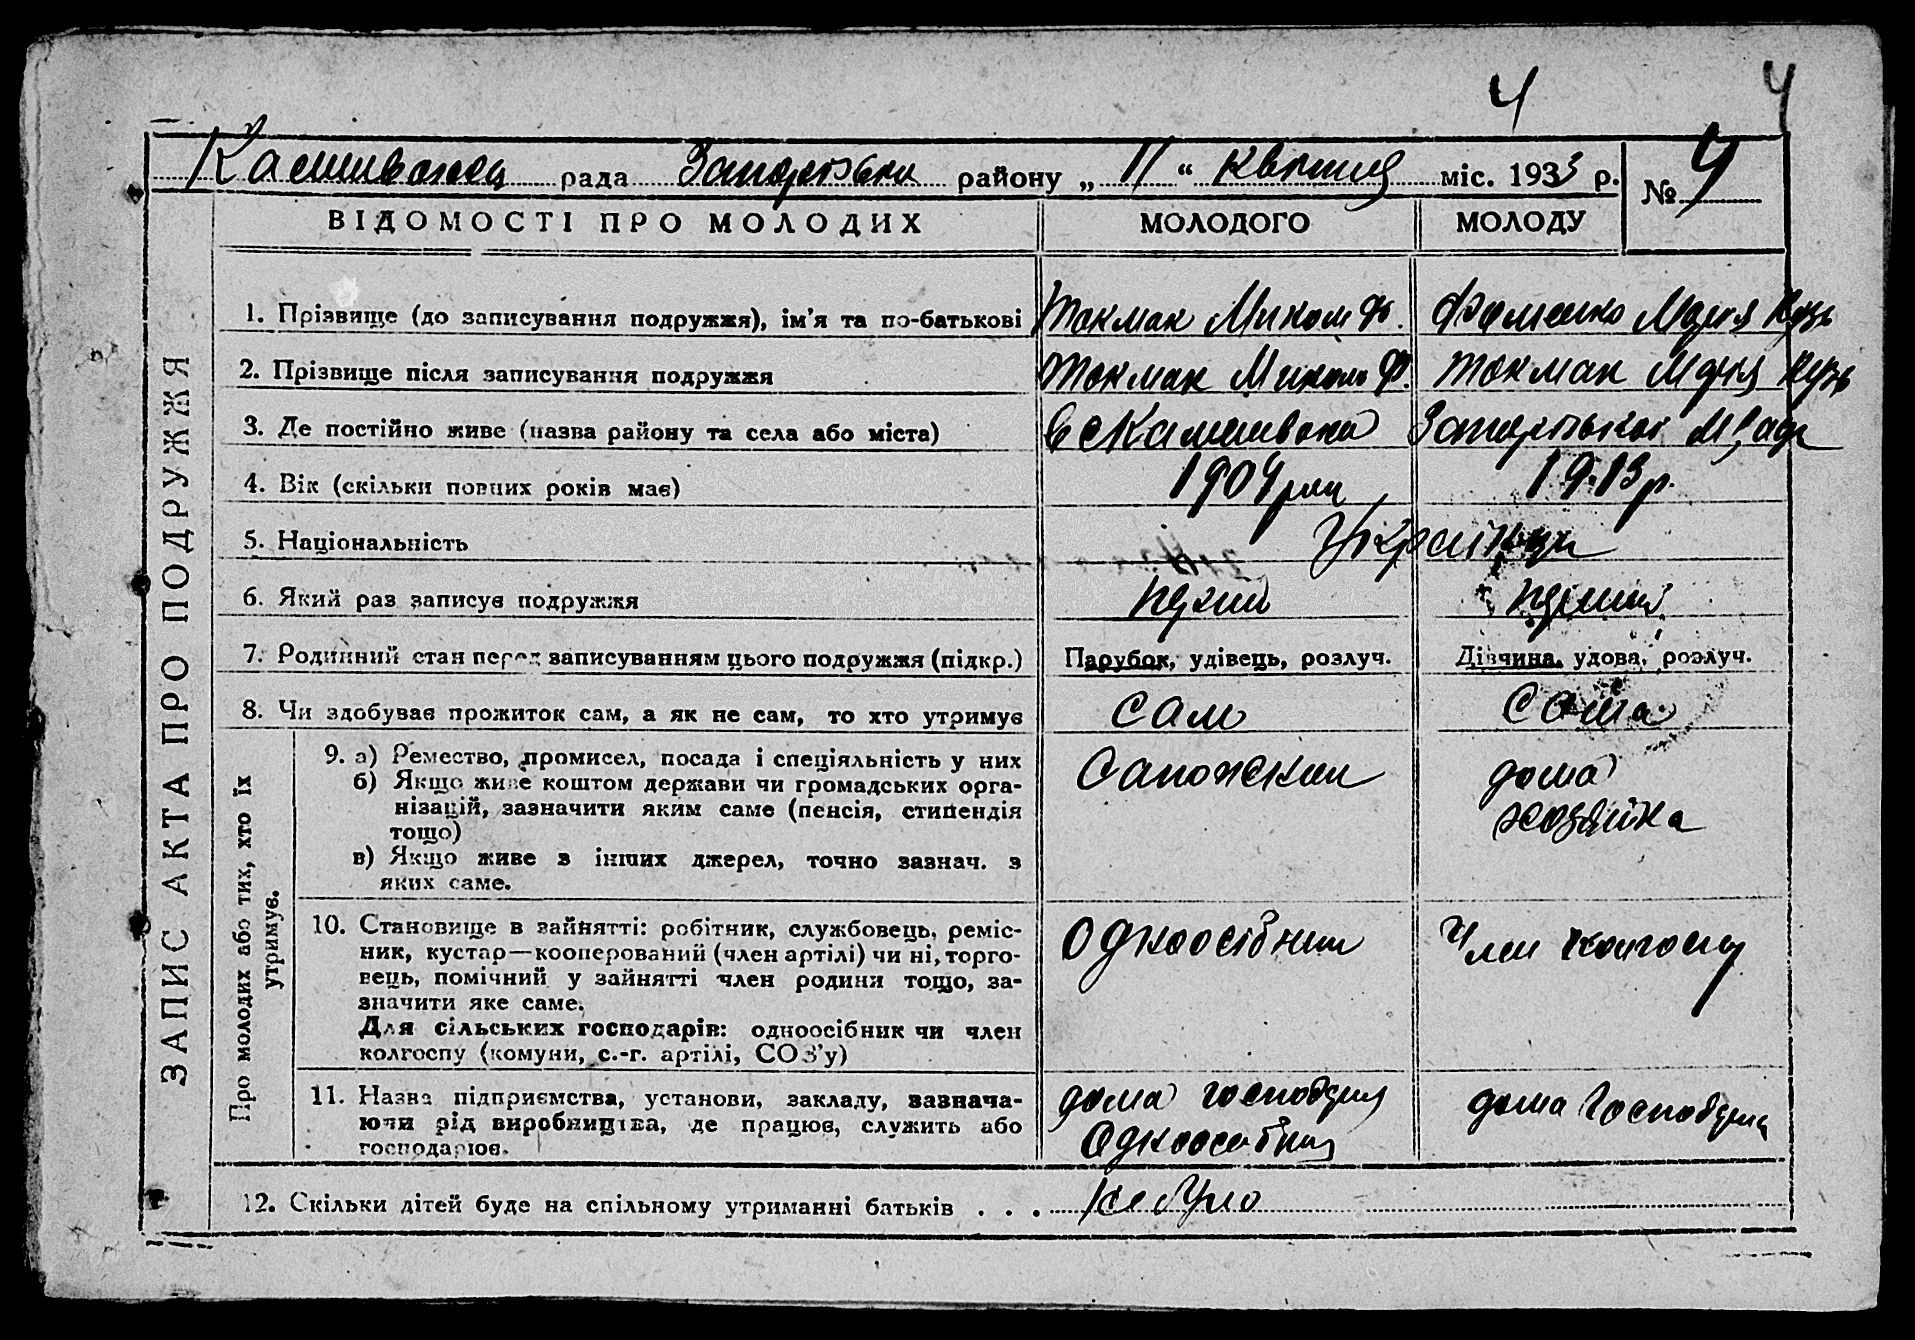 4 4
рада района „ 11 “ Квітня міс. 1933 р. № 4
ВІДОМОСТІ ПРО МОЛОДИХ МОЛОДОГО МОЛОДУ
ЗАПИС АКТА ПРО ПОДРУЖЖЯ
1. Прізвище (до записування подружжя), ім’я та по-батькові Токмак Микол Ф. Фоменко Мария Кузь
2. Прізвище після записування подружжя Токмак Микол Ф. Токмак Мария Кузь
3. Де постійно живе (назва району та села або міста)
4. Вік (скільки повних років має) 1904 1913 р.
5. Національність Українци
6. Який раз записує подружжя
7. Родинний стан перед записуванням цього подружжя (підкр.) Парубок, удівець, розлуч. Дівчина, удова, розлуч.
8. Чи здобуває прожиток сам, а як не сам, то хто утримує сам сама
Про молодих або тих, хто їх утримує.
9. а) Ремество, промисел, посада і спеціяльність у них Сапожник дома
б) Якщо живе коштом держави чи громадських орга-
нізацій, зазначити яким саме (пенсія, стипендія хозяйка
тощо)
в) Якщо живе з інших джерел, точно зазнач. з
яких саме.
10. Становище в зайнятті: робітник, службовець, реміс- Одноосібник Член колгоспу
ник, кустар—кооперований (член артілі) чи ні, торго-
вець, помічний у зайнятті член родини тощо, за-
значити яке саме.
Для сільських господарів: одноосібник чи член
колгоспу (комуни, с.-г. артілі, СОЗ’у)
11. Назва підприємства, установи, закладу, зазнача- дома дома
ючи рід виробництва, де працює, служить або
господарює.
12. Скільки дітей буде на спільному утриманні батьків . . . не було